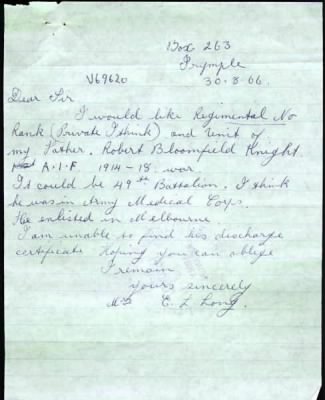 Box 263
Irymple
30.8.66.
V69620
Dear Sir
I would like Regimental No
Rank (Private I think) and Unit of
my Father. Robert Bloomfield Knight.
A.I.F 1914-18. war.
It could be 49th Battalion, I think
he was in Army Medical Corps.
He enlisted in Melbourne
I am unable to find his discharge
certificate hoping you can oblige
I remain
yours sincerely
Mrs E. L. Long.